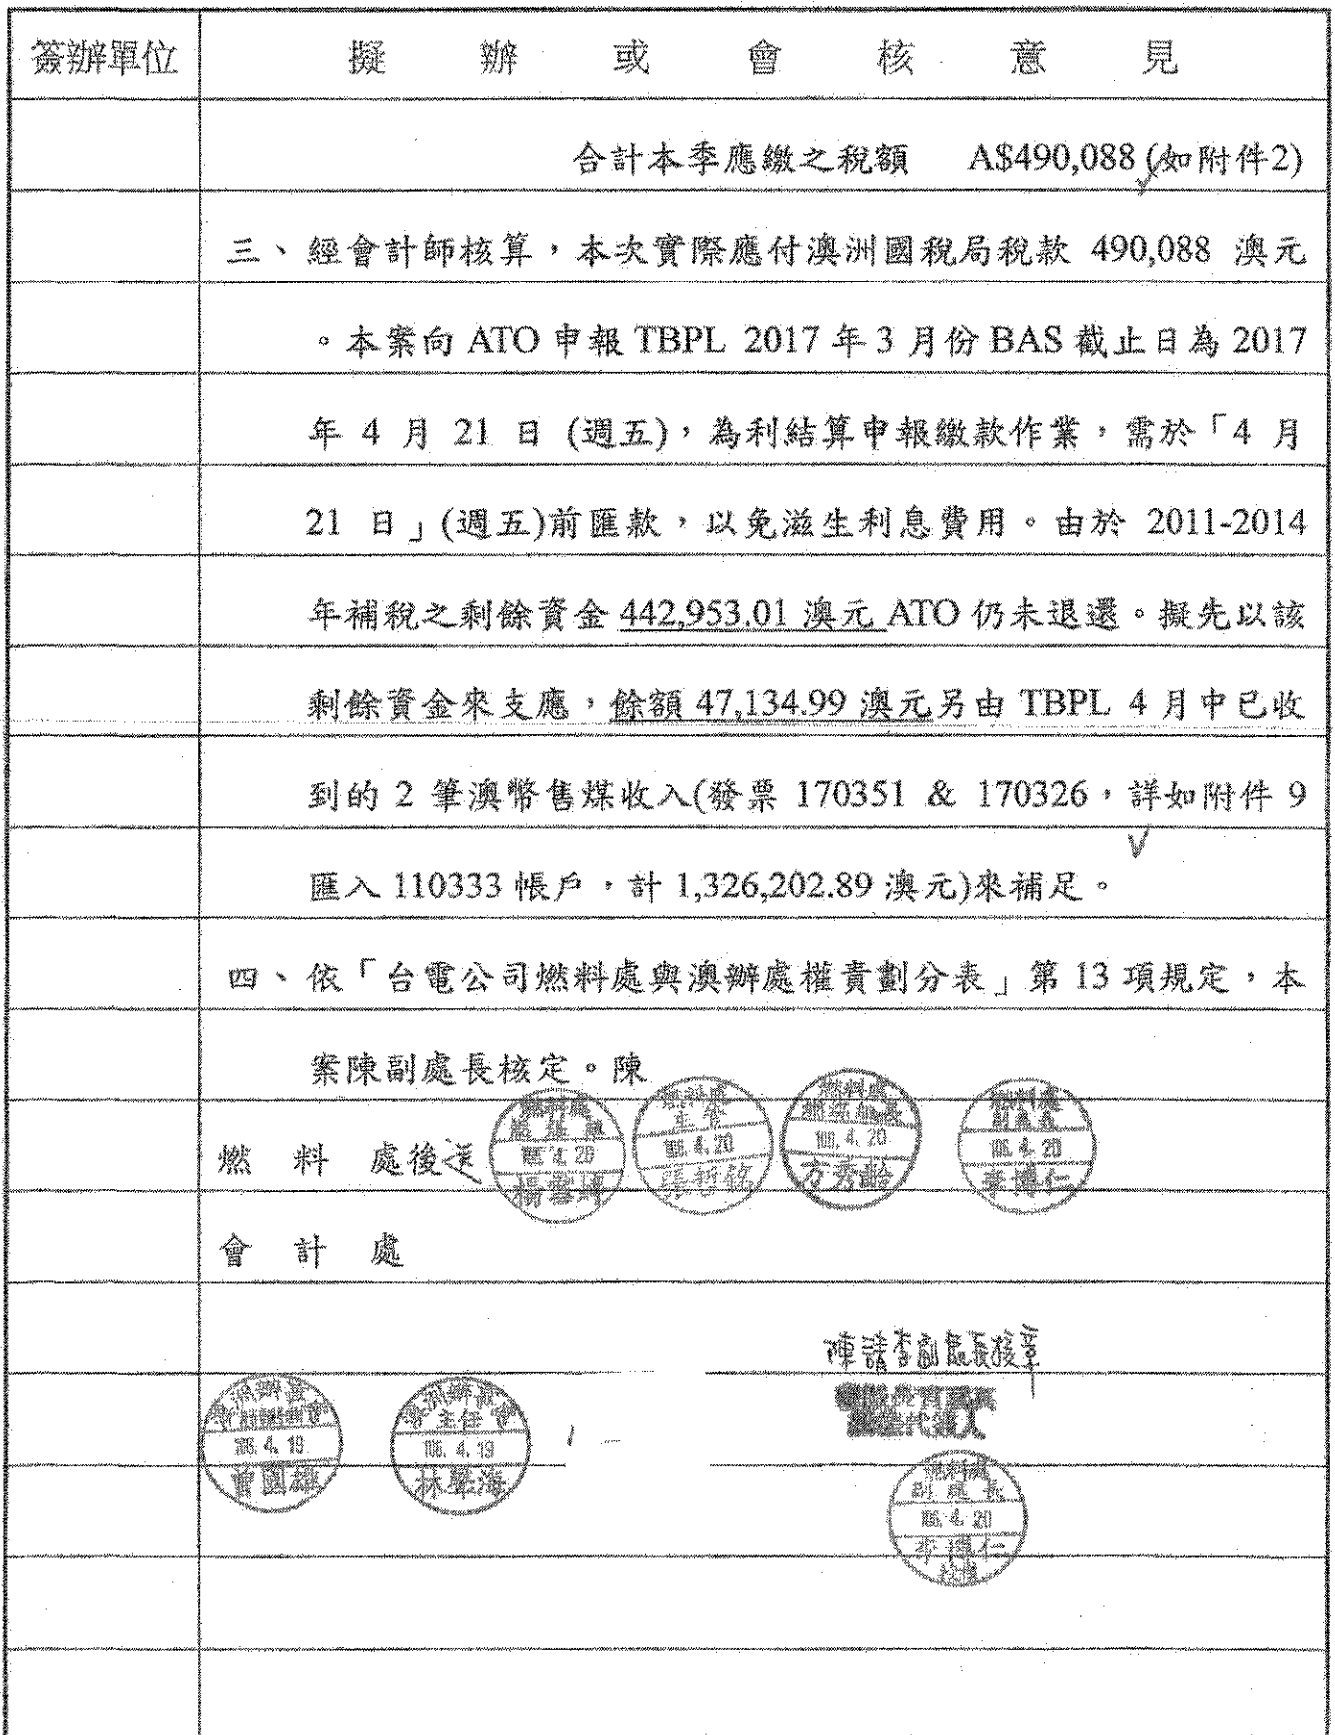 簽辦單位 擬辦或會核意見
合計本季應繳之稅額 A$490,088 (如附件2)
三、經會計師核算，本次實際應付澳洲國稅局稅款 490,088 澳元
。本案向 ATO 申報 TBPL 2017 年 3 月份 BAS 截止日為 2017
年 4 月 21 日 (週五)，為利結算申報繳款作業，需於「4 月
21 日」(週五)前匯款，以免滋生利息費用。由於 2011-2014
年補稅之剩餘資金 442,953.01 澳元 ATO 仍未退還。擬先以該
剩餘資金來支應，餘額 47,134.99 澳元另由 TBPL 4 月中已收
到的 2 筆澳幣售煤收入(發票 170351 & 170326，詳如附件 9
匯入 110333 帳戶，計 1,326,202.89 澳元)來補足。
四、依「台電公司燃料處與澳辦處權責劃分表」第 13 項規定，本
案陳副處長核定。陳
燃料處後送
燃料處 106.4.20
燃料處 主管 106.4.20 張哲銘
燃料處 106.4.20 方秀齡
燃料處 副處長 106.4.20 李博仁
會計處
陳請李副處長核章
106.4.19 曾國雄
主任 106.4.19 林
代 人
燃料處 副處長 106.4.20 李博仁